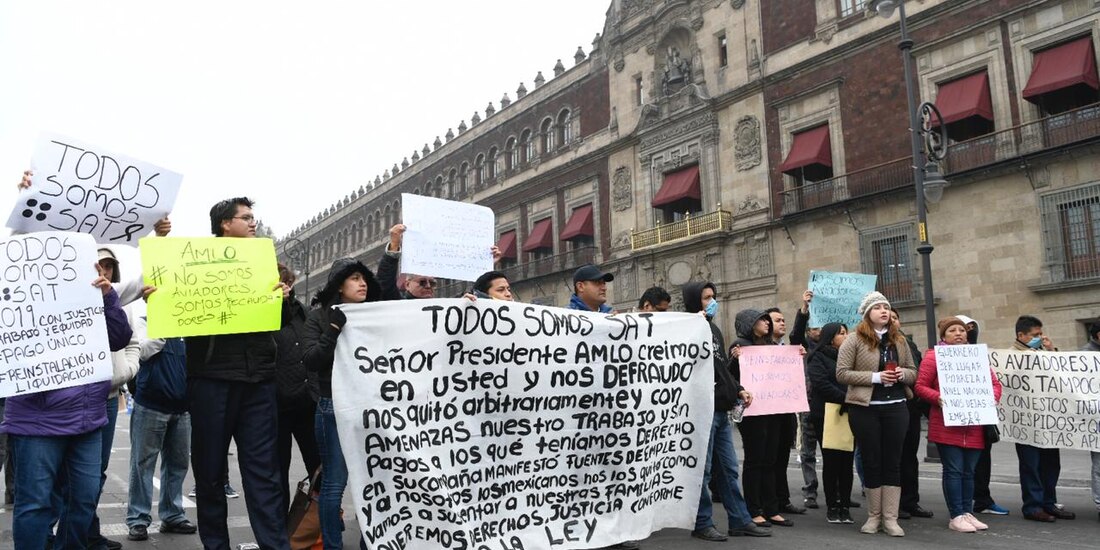 TODOS
SOMOS
SAT
TODOS
SOMOS
SAT
2019 CON JUSTICIA
TRABAJO Y EQUIDAD
PAGO ÚNICO
REINSTALACIÓN O
LIQUIDACIÓN
AMLO
#NO SOMOS
AVIADORES,
SOMOS RECAUDA-
DORES#
TODOS SOMOS SAT
Señor Presidente AMLO creimos
en usted y nos DEFRAUDO
nos quitó arbitrariamente y con
AMENAZAS nuestro TRABAJO y sin
Pagos a los que teníamos DERECHO
en su campaña MANIFESTÓ FUENTES DE EMPLEO
y a nosotros los mexicanos nos los quitó como
vamos a sustentar a nuestras FAMILIAS
QUEREMOS DERECHOS, JUSTICIA CONFORME
A LA LEY
NO SOMOS
AVIADORES
GUERRERO
1ER LUGAR
POBREZA A
NIVEL NACIONAL
Y NOS DEJAS
SIN
EMPLEO
TAMPOC
CON ESTOS INJ
DESPIDOS